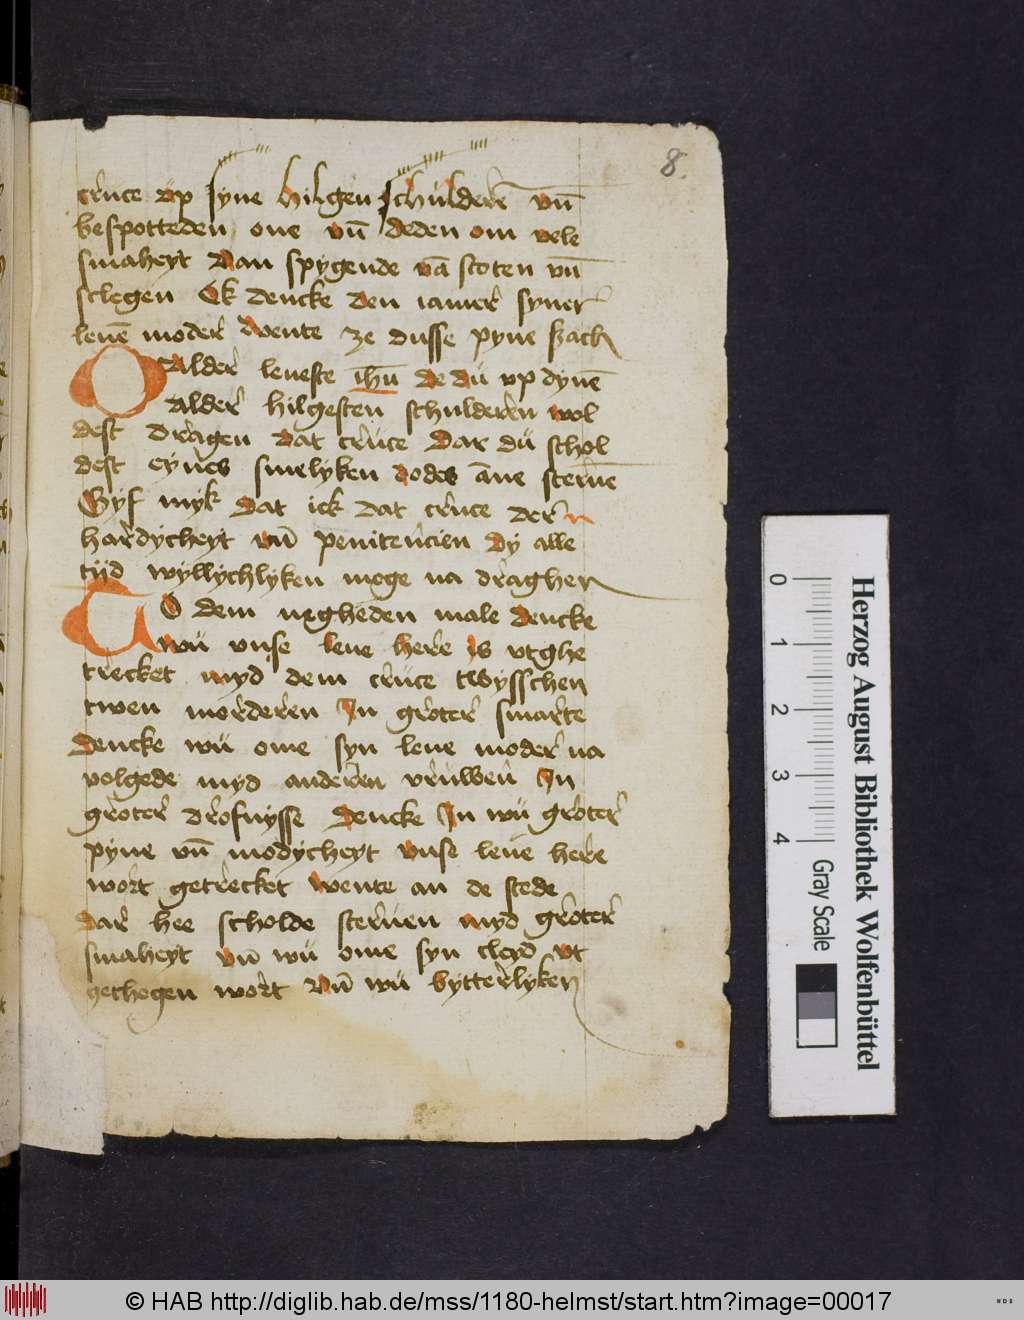 8.
cruce vp syne hilgen schulderē vn̄
bespotteden one vn̄ deden om vele
smaheyt Dan spygende vā stoten vn̄
sclegen Ek dencke den iamer syner
leuē moder wente ze dusse pyne szach
O Alder leueste ihū de dü vp dynē
alder hilgesten schulderen wol
dest dragen dat crüce Dar dü schol
dest eynes smelyken dodes āne steruē
Gyf myk dat ick dat cruce der
hardycheyt vn̄ penitencien dy alle
tijd wyllychlyken moge na dragher
To dem negheden male dencke
wü vnse leue here is vtghe
trecket myd dem crüce twysschen
twen morderen In groter smarte
Dencke wü ome syn leue moder na
volgede myd anderen vrüwen In
groter drofnysse Dencke In wü groter
pyne vn̄ modycheyt vnse leue here
wort getrecket wente an de stede
dar hee scholde steruen myd groter
smaheyt vn̄ wü ome syn cleyd vt
gethegen wort vn̄ wü bytterlyken
0 1 2 3 4
Gray Scale
Herzog August Bibliothek Wolfenbüttel
© HAB http://diglib.hab.de/mss/1180-helmst/start.htm?image=00017